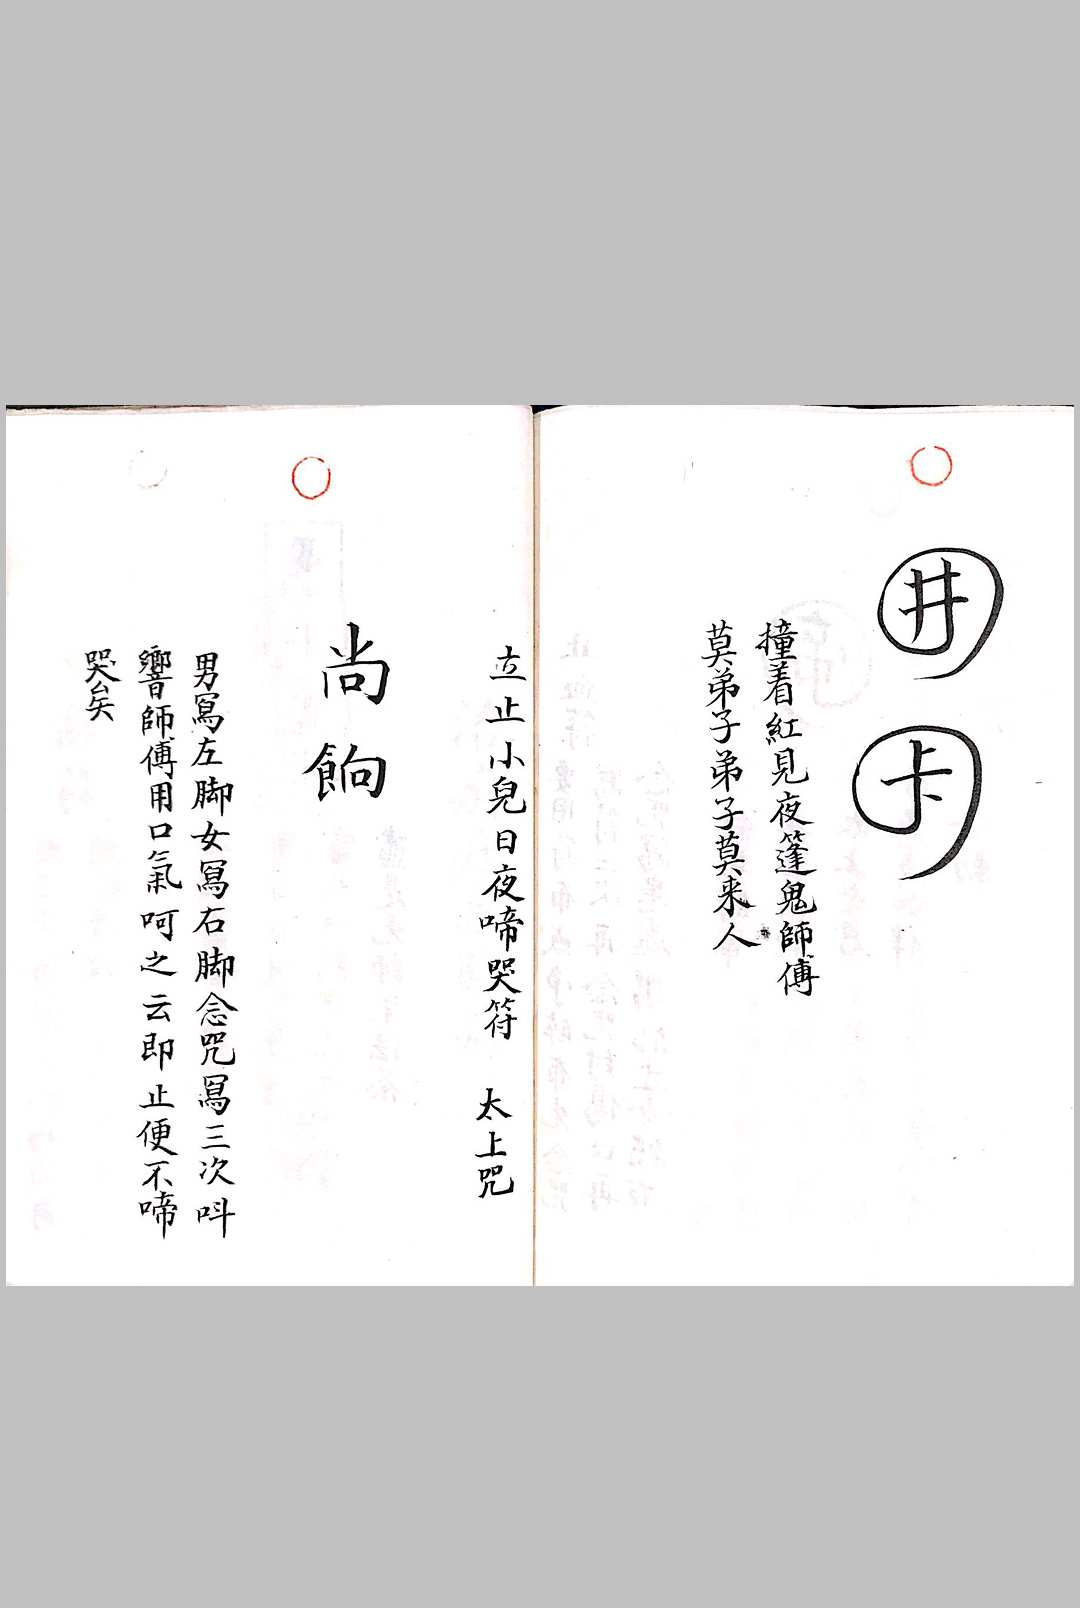 井
卡
撞着紅見夜篷鬼師傅
莫弟子弟子莫来人
立止小兒日夜啼哭符　太上咒
尚
餉
男寫左脚女寫右脚念咒寫三次呌
響師傅用口氣呵之云即止便不啼
哭矣